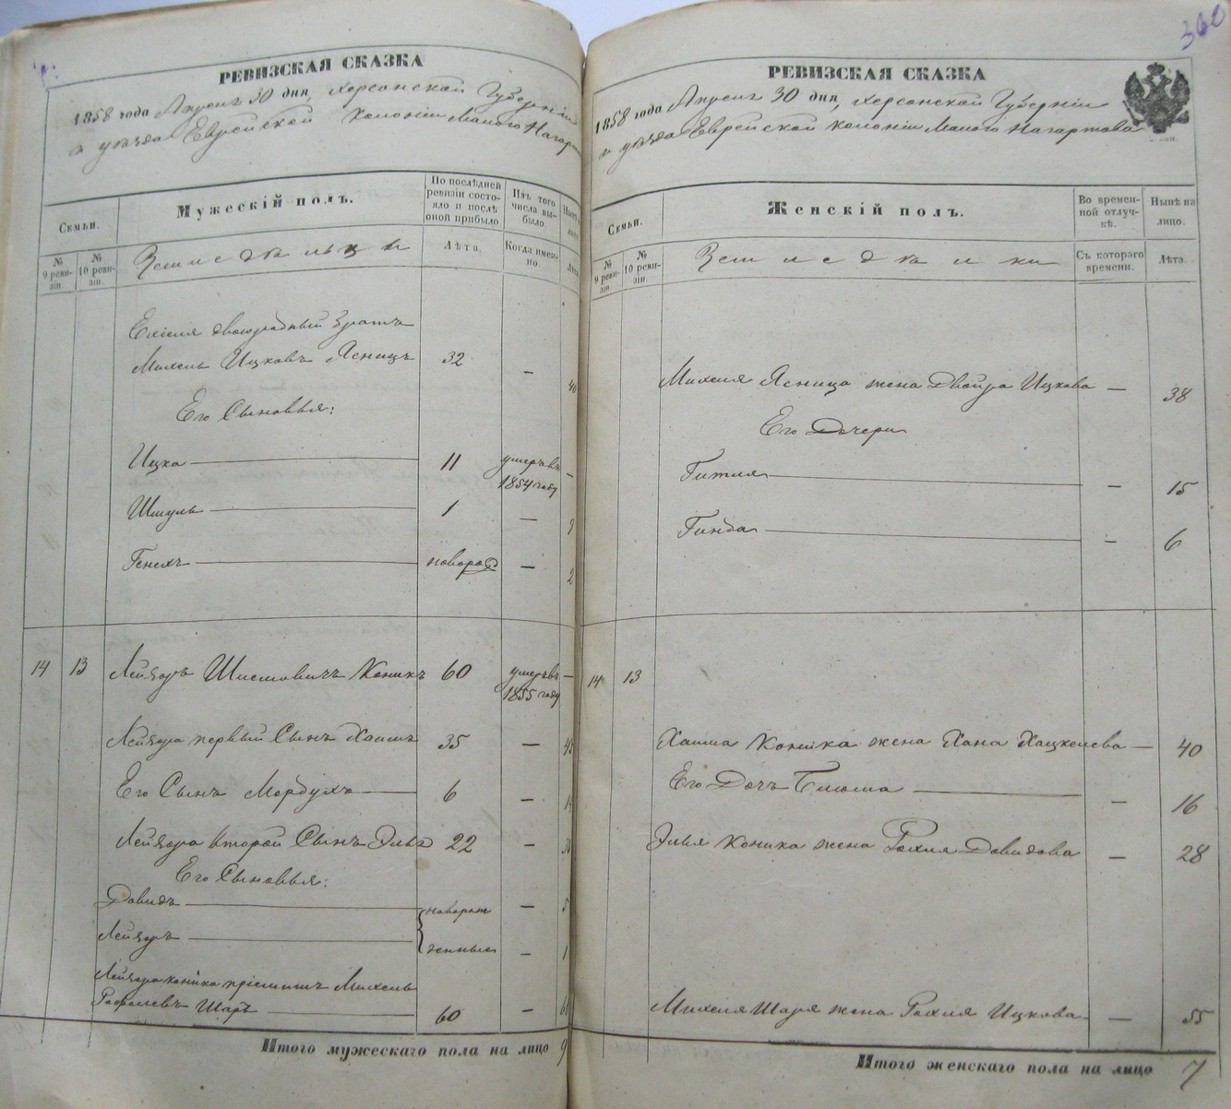 РЕВИЗСКАЯ СКАЗКА
1858 года Апреля 30 дня, Херсонской Губерніи
и уезда Еврейской Колоніи Малого
Семьи.
Мужескій полъ.
По послѣдней ревизіи состояло и послѣ оной прибыло
Изъ того числа выбыло
№ 9 ревизіи.
№ 10 ревизіи.
Земледѣльцы
Лѣта.
Когда именно.
Ехіеля двоюродный Братъ
Михель Ицковъ Ясницъ 32 —
Его Сыновья:
Ицка 11 умеръ въ 1854 году —
Шмуль 1 —
Генехъ новорож —
14 13 Лейзоръ Шмеловичъ Коникъ 60 умеръ въ 1855 году —
Лейзора первый Сынъ Хаимъ 35 —
Его Сынъ Мордухъ 6 —
Лейзора второй Сынъ Элья 22 —
Его Сыновья:
Довидъ новорож —
Лейзоръ денные —
Лейзора коника пріемышъ Михель
Рафаелевъ Шаръ 60 —
Итого мужескаго пола на лицо 9
360
РЕВИЗСКАЯ СКАЗКА
1858 года Апреля 30 дня, Херсонской Губерніи
и уезда Еврейской колоніи Малого Нагартова
Семьи.
Женскій полъ.
Во временной отлучкѣ.
Нынѣ на лицо.
№ 9 ревизіи.
№ 10 ревизіи.
Земледѣлки
Съ котораго времени.
Лѣта.
Михеля Ясница жена Двойра Ицкова — 38
Его Дочери
Гитля — 15
Гинда — 6
14 13
Хаима Коника жена Хана Хацкелева — 40
Его Дочь Блюма — 16
Элья Коника жена Рохля Довидова — 28
Михеля Шаря жена Рохля Ицкова — 55
Итого женскаго пола на лицо 7